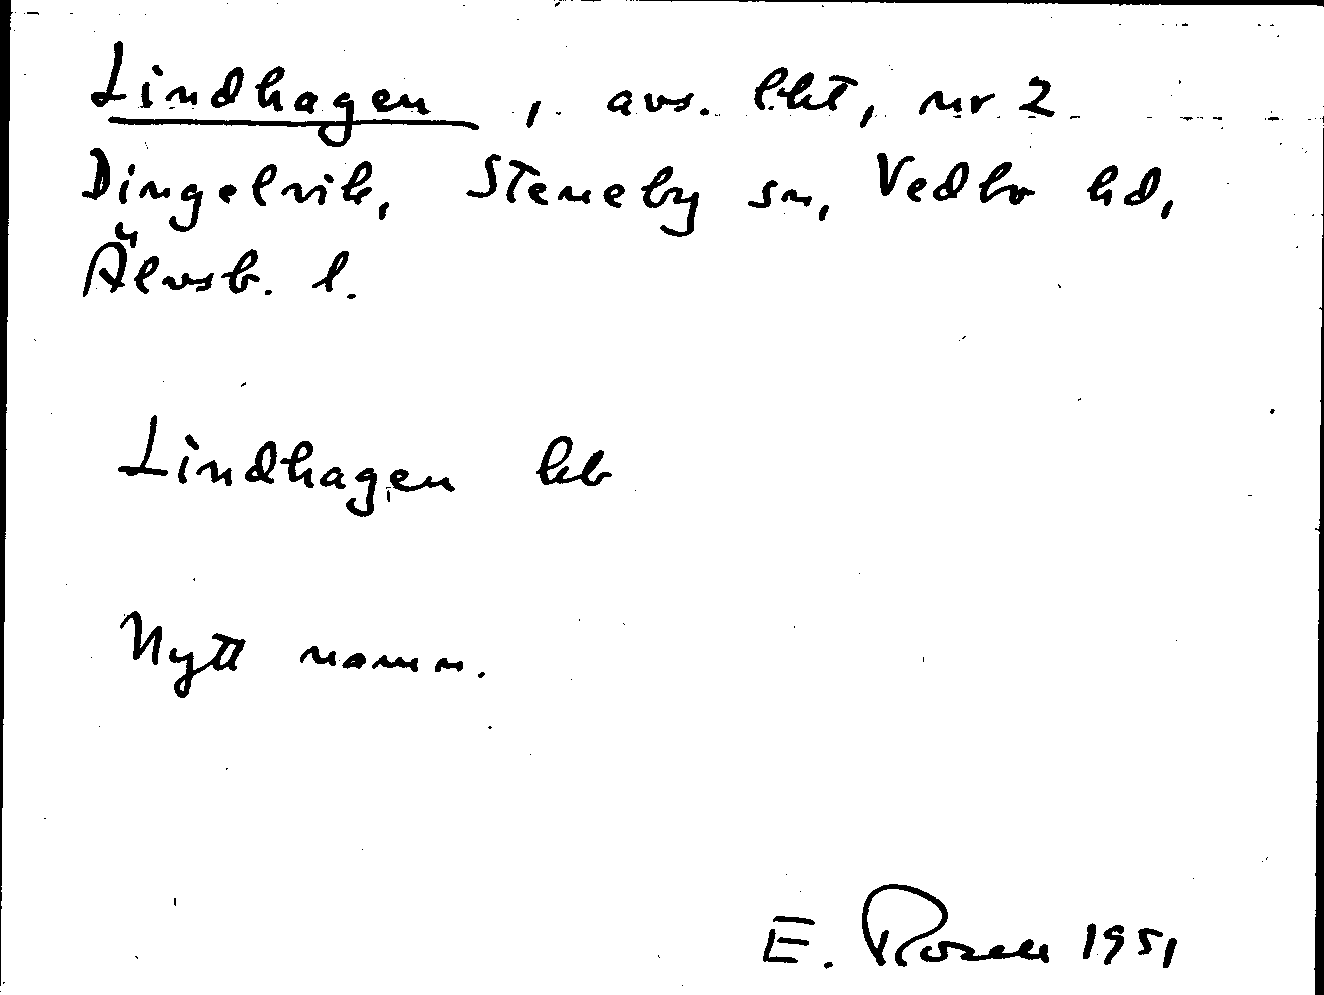 Lindhagen, avs. lht, nr 2
Dingelvik, Steneby sn, Vedbo hd,
Älvsb. l.
Lindhagen kb
Nytt namn.
E. Rosell 1951